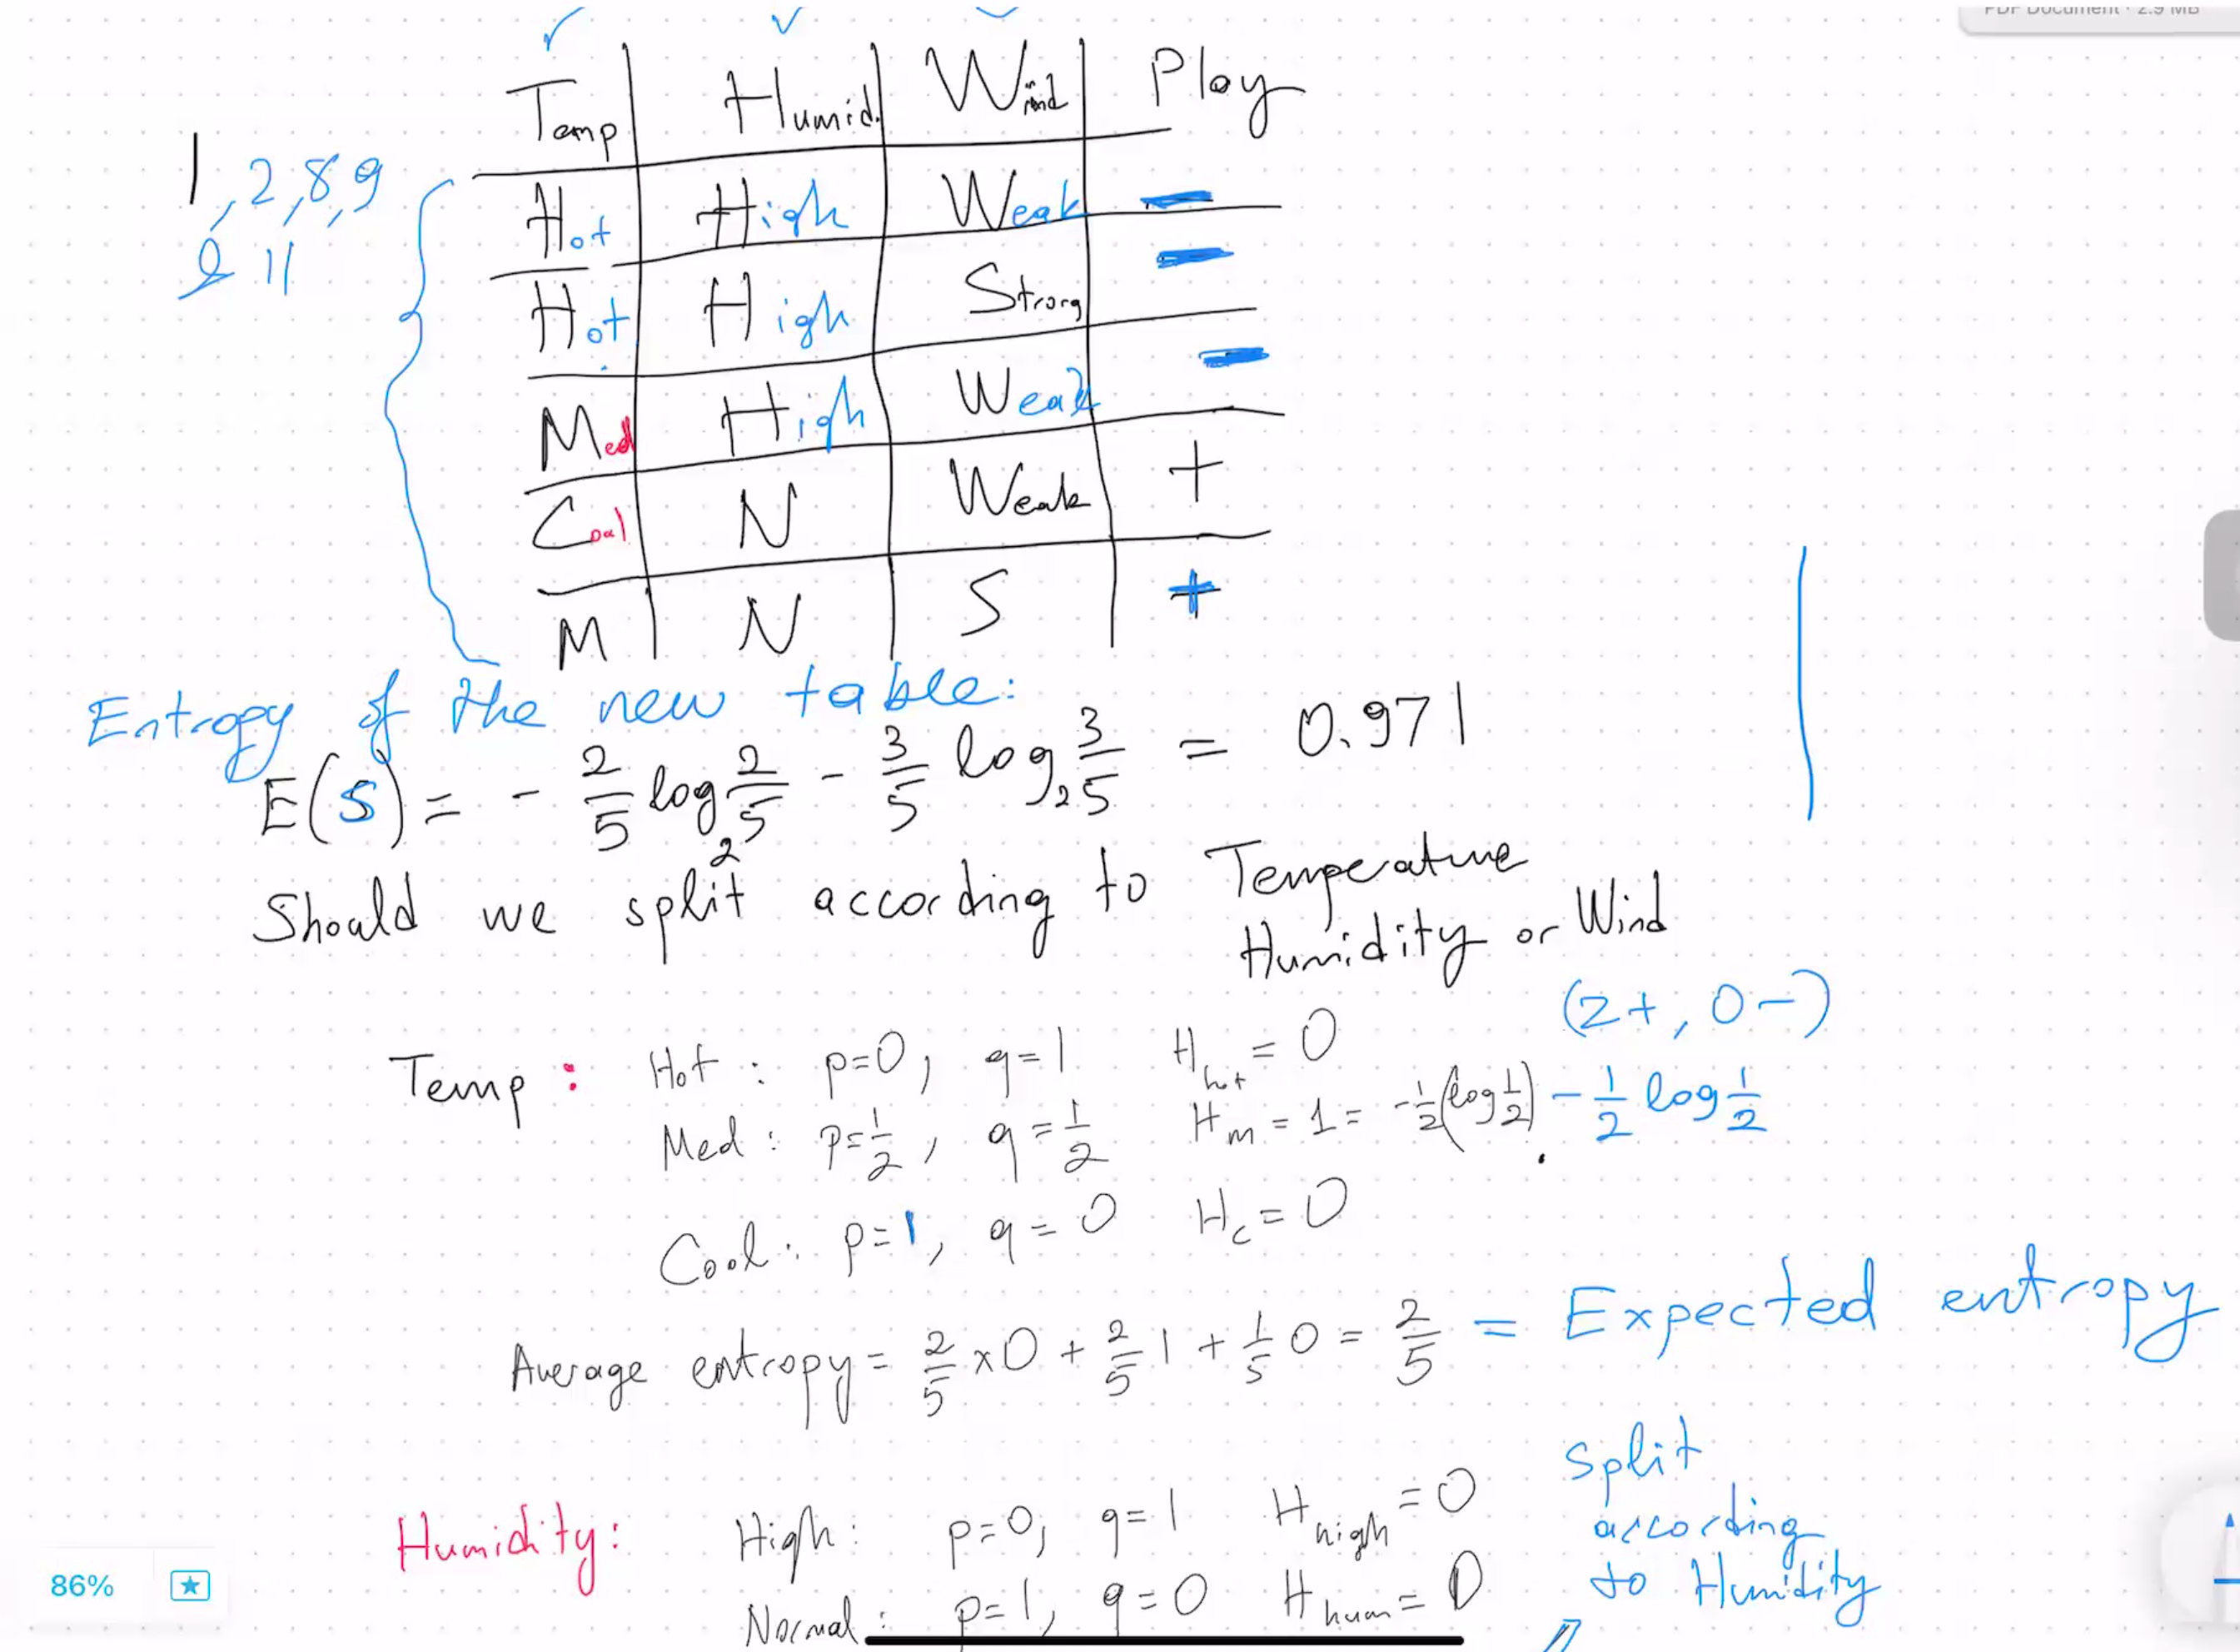 PDF Document · 2.9 MB
Temp Humid. Wind Play
1, 2, 8, 9
& 11
Hot High Weak −
Hot High Strong −
Med High Weak −
Cool N Weak +
M N S +
Entropy of the new table:
E(S) = - 2/5 log₂ 2/5 - 3/5 log₂ 3/5 = 0.971
Should we split according to Temperature
Humidity or Wind
(2+, 0−)
Temp: Hot: p=0, q=1 H_hot = 0
Med: p=1/2, q=1/2 H_m = 1 = -1/2(log 1/2) - 1/2 log 1/2
Cool: p=1, q=0 H_c = 0
Average entropy = 2/5 x0 + 2/5 1 + 1/5 0 = 2/5 = Expected entropy
Humidity: High: p=0, q=1 H_high = 0
Normal: p=1, q=0 H_hum = 0
Split
according
to Humidity
86%